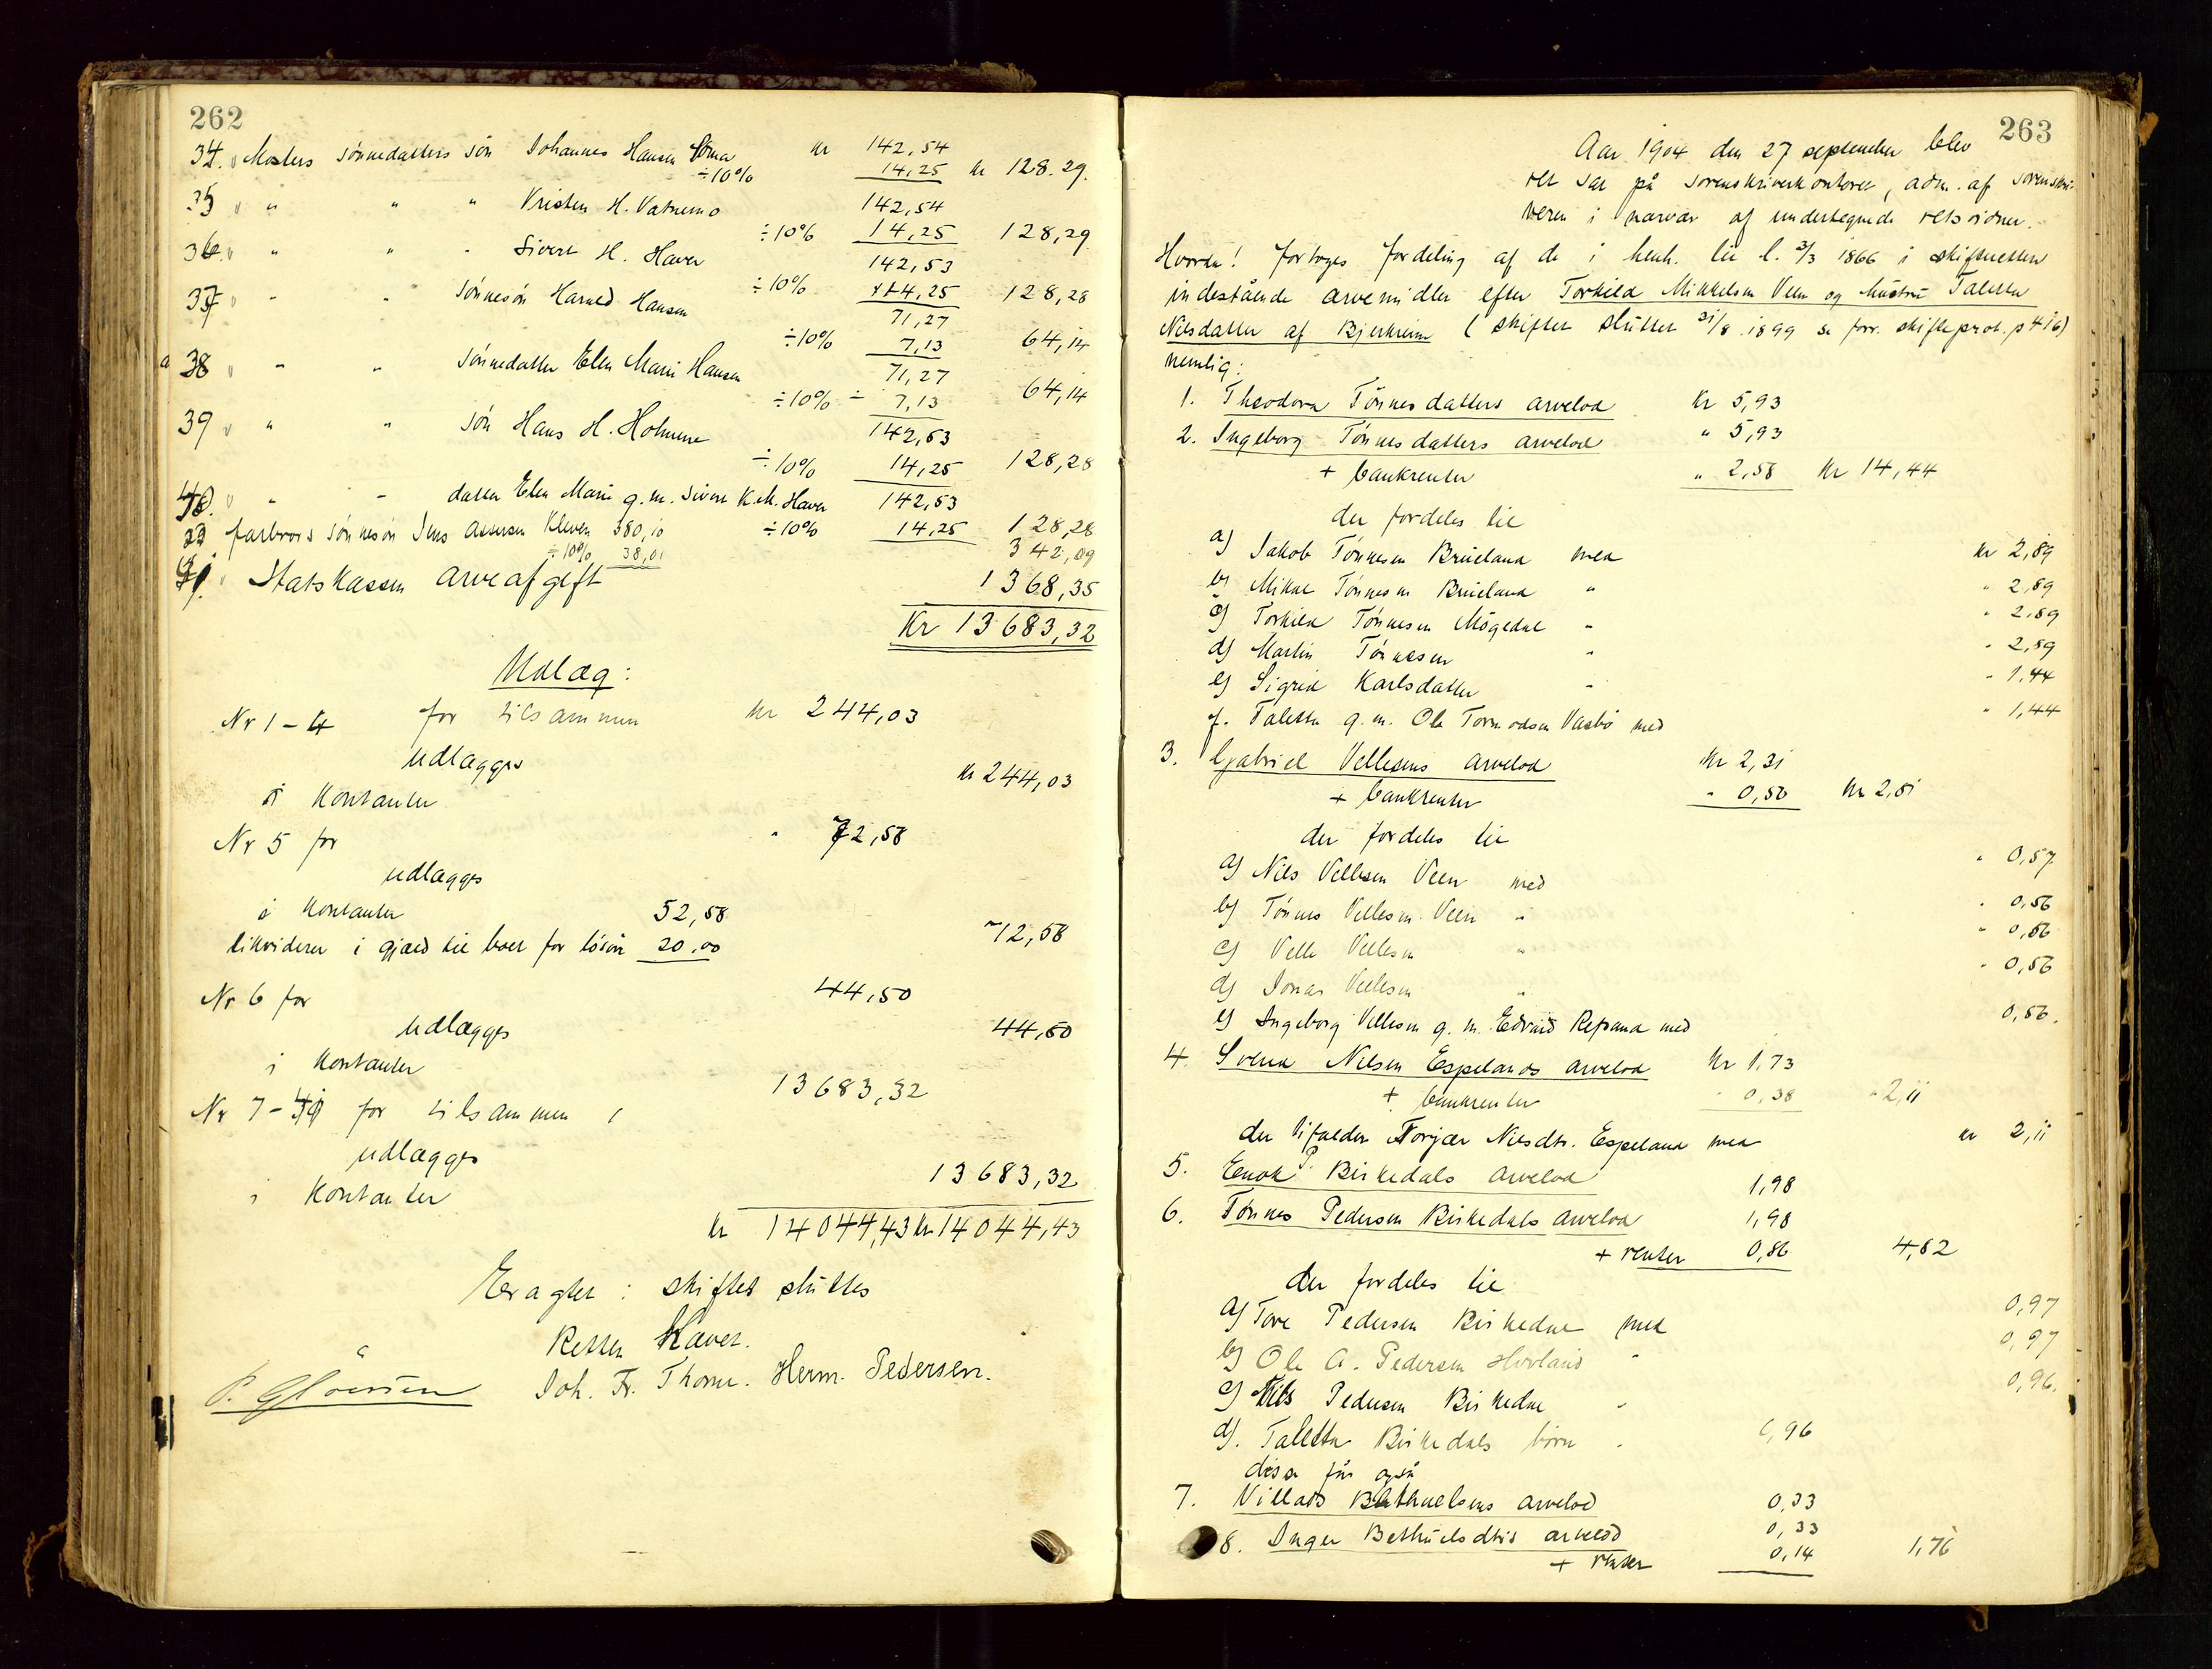 262
34. Mosters sønnedatters søn Johannes Hansen Homa kr 142,54
÷10% 14,25 kr 128.29.
35 " " " Kristen H. Vatnemo 142,54
÷10% 14,25 128,29
36. " " - Sivert H. Haver 142,53
÷10% 14,25 128,28
37 " " sønnesøn Harald Hansen 71,27
÷10% 7,13 64,14
38 " " sønnedatter Elen Marie Hansen 71,27
÷10% ÷ 7,13 64,14
39 " " søn Hans H. Holmene 142,53
÷10% 14,25 128,28
40. " - datter Elen Marie g.m. Sivert K.M. Haver 142,53
÷10% 14,25 128,28
23 farbrors sønnesøn Jens Assersen Kleven 380,10
÷10% 38,01 342,09
41. Statskassen arveafgift 1368,35
Kr 13683,32
Udlæg:
Nr 1-4 for tilsammen kr 244,03
udlægges
i kontanter kr 244,03
Nr 5 for " 72,58
udlægges
i kontanter 52,58
likviderer i gjæld til boet for løsøre 20.00 72,58
Nr 6 for 44,50
udlægges
i kontanter 44,50
Nr 7-41 for tilsammen 13683,32
udlægges
i kontanter 13683,32
kr 14044,43 kr 14044,43
Eragtet: skiftet sluttes
Retten hævet.
Joh. Fr. Thome. Herm. Pedersen.
263
Aar 1904 den 27 september blev
ret sat på sorenskriverkontoret, adm. af sorenskri-
veren i nærvær af undertegnede retsvidner.
Hvorda! foretoges fordeling af de i henh. til l. 3/3 1866 i skifteretten
indestående arvemidler efter Torkild Mikkelsen Veen og hustru Taletta
Nilsdatter af Bjerkreim (skiftet sluttet 31/8 1899 se forr. skifteprot. p 416)
nemlig:
1. Theodora Tønnesdatters arvelod Kr 5,93
2. Ingeborg Tønnesdatters arvelod " 5,93
+ bankrenter " 2,58 Kr 14,44
der fordeles til
a) Jakob Tønnesen Brueland med kr 2,89
b) Mikal Tønnesen Brueland " " 2,89
c) Torkild Tønnesen Møgedal " " 2,89
d) Martin Tønnesen " " 2,89
e) Sigrid Karlsdatter " " 1,44
f. Taletta g.m. Ole Tormodsen Vasbø med " 1,44
3. Gabriel Vellesens arvelod Kr 2,31
+ bankrenter " 0,50 Kr 2,81
der fordeles til
a) Nils Vellesen Veen med " 0,57
b) Tønnes Vellesen Veen " " 0,56
c) Velle Vellesen " " 0,56
d) Jonas Vellesen " " 0,56
e) Ingeborg Vellesen g.m. Edvard Refsand med 0,56.
4. Svend Nilsen Espelands arvelod Kr 1,73
+ bankrenter " 0,38 " 2,11
der tilfalder Torjær Nilsdtr. Espeland med kr 2,11
5. Enok P. Birkedals arvelod 1,98
6. Tønnes Pedersen Birkedals arvelod 1,98
+ renter 0,86 4,82
der fordeles til
a) Tore Pedersen Birkedal med 0,97
b) Ole A. Pedersen Hovland " 0,97
c) Nils Pedersen Birkedal " 0,96.
d). Taletta Birkedals børn " 0,96
disse får også
7. Villads Bethuelsens arvelod 0,33
8. Inger Bethuelsdtrs arvelod 0,33
+ renter 0,14 1,76